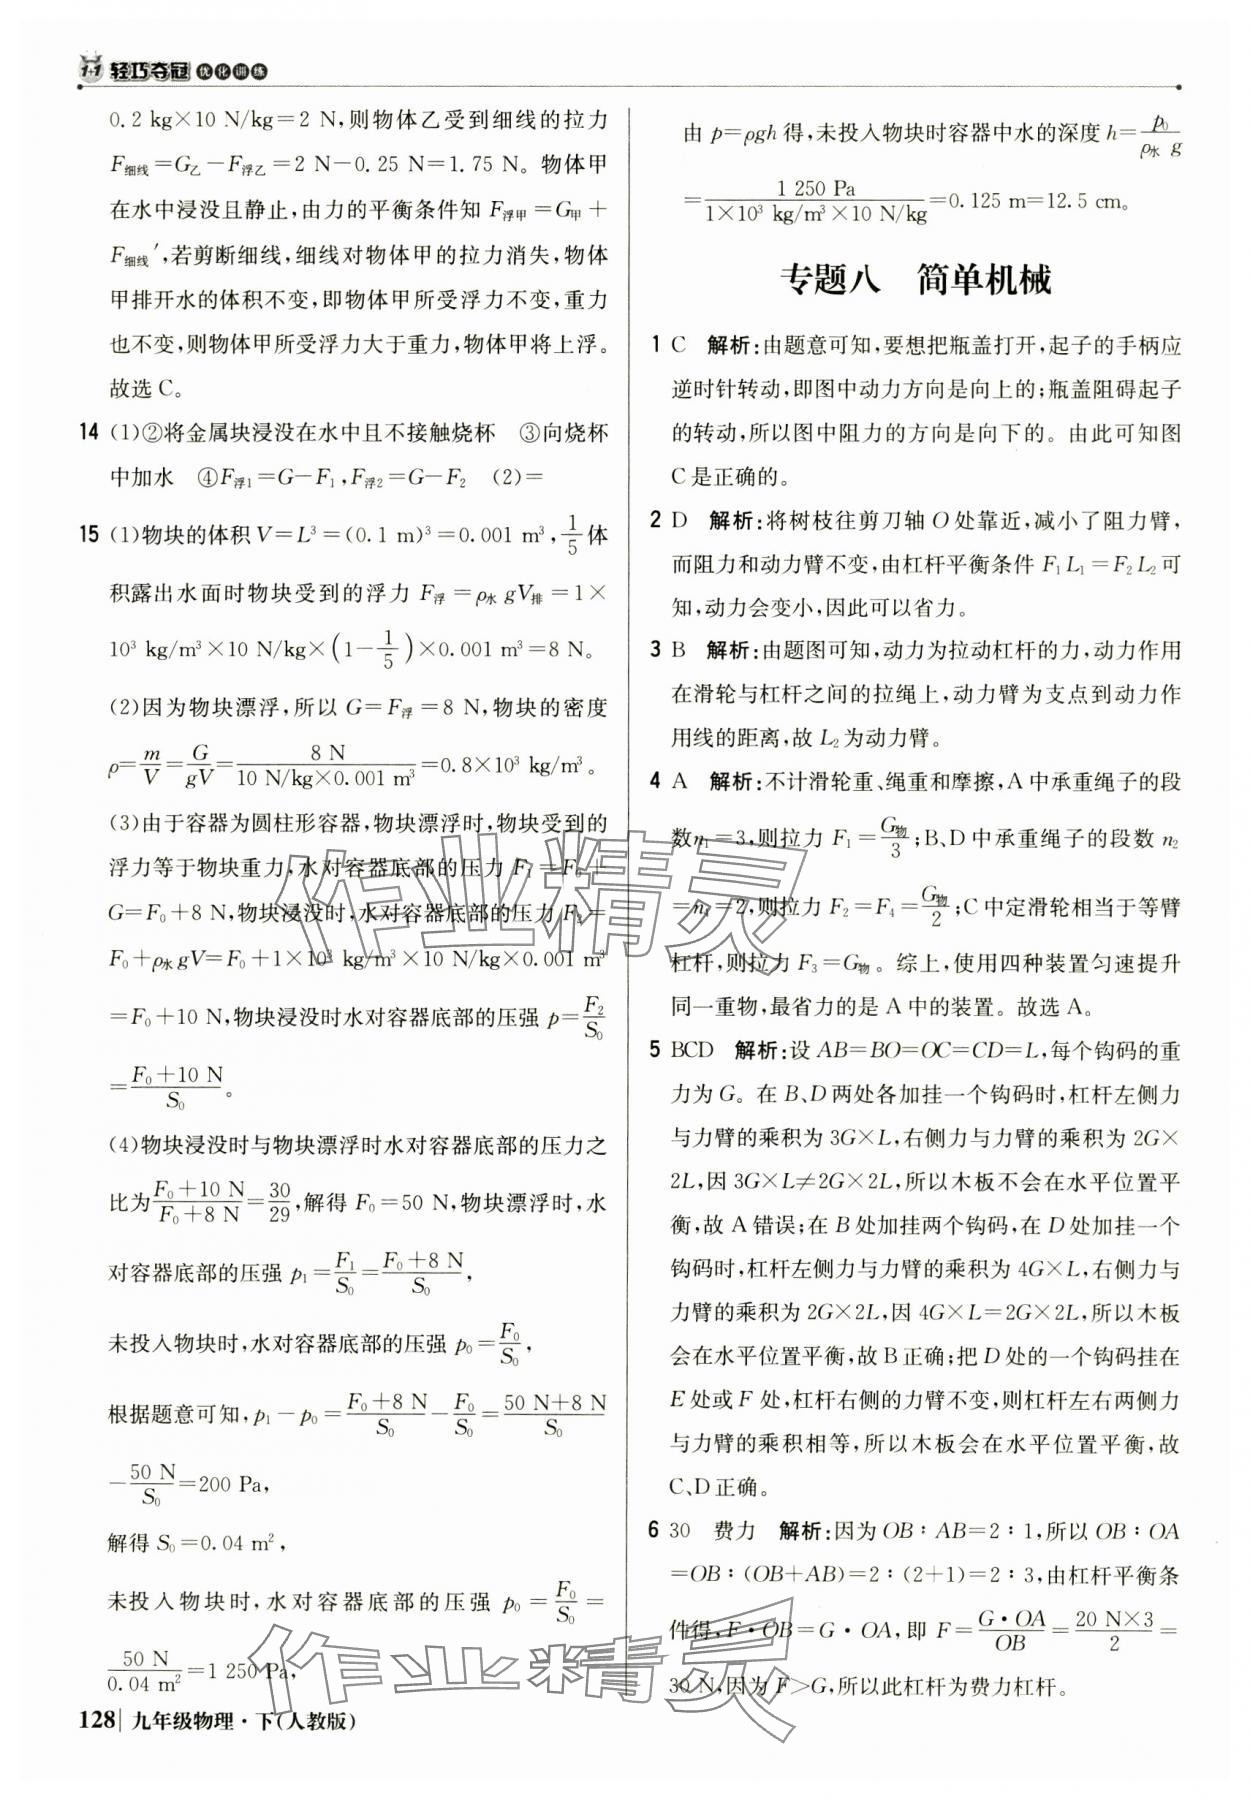 1+1 轻巧夺冠 优化训练
0.2 kg×10 N/kg=2 N,则物体乙受到细线的拉力
F细线=G乙-F浮乙=2 N-0.25 N=1.75 N。物体甲
在水中浸没且静止,由力的平衡条件知 F浮甲=G甲+
F细线′,若剪断细线,细线对物体甲的拉力消失,物体
甲排开水的体积不变,即物体甲所受浮力不变,重力
也不变,则物体甲所受浮力大于重力,物体甲将上浮。
故选 C。
14 (1)②将金属块浸没在水中且不接触烧杯 ③向烧杯
中加水 ④F浮1=G-F₁,F浮2=G-F₂ (2)=
15 (1)物块的体积 V=L³=(0.1 m)³=0.001 m³,1/5体
积露出水面时物块受到的浮力 F浮=ρ水 gV排=1×
10³ kg/m³×10 N/kg×(1-1/5)×0.001 m³=8 N。
(2)因为物块漂浮,所以 G=F浮=8 N,物块的密度
ρ=m/V=G/gV=8 N/(10 N/kg×0.001 m³)=0.8×10³ kg/m³。
(3)由于容器为圆柱形容器,物块漂浮时,物块受到的
浮力等于物块重力,水对容器底部的压力 F₁=F₀+
G=F₀+8 N,物块浸没时,水对容器底部的压力 F₂=
F₀+ρ水 gV=F₀+1×10³ kg/m³×10 N/kg×0.001 m³
=F₀+10 N,物块浸没时水对容器底部的压强 p=F₂/S₀
=(F₀+10 N)/S₀。
(4)物块浸没时与物块漂浮时水对容器底部的压力之
比为(F₀+10 N)/(F₀+8 N)=30/29,解得 F₀=50 N,物块漂浮时,水
对容器底部的压强 p₁=F₁/S₀=(F₀+8 N)/S₀,
未投入物块时,水对容器底部的压强 p₀=F₀/S₀,
根据题意可知,p₁-p₀=(F₀+8 N)/S₀-F₀/S₀=(50 N+8 N)/S₀
-50 N/S₀=200 Pa,
解得 S₀=0.04 m²,
未投入物块时,水对容器底部的压强 p₀=F₀/S₀=
50 N/0.04 m²=1 250 Pa,
由 p=ρgh 得,未投入物块时容器中水的深度 h=p₀/(ρ水 g)
=1 250 Pa/(1×10³ kg/m³×10 N/kg)=0.125 m=12.5 cm。
专题八 简单机械
1 C 解析:由题意可知,要想把瓶盖打开,起子的手柄应
逆时针转动,即图中动力方向是向上的;瓶盖阻碍起子
的转动,所以图中阻力的方向是向下的。由此可知图
C 是正确的。
2 D 解析:将树枝往剪刀轴 O 处靠近,减小了阻力臂,
而阻力和动力臂不变,由杠杆平衡条件 F₁L₁=F₂L₂可
知,动力会变小,因此可以省力。
3 B 解析:由题图可知,动力为拉动杠杆的力,动力作用
在滑轮与杠杆之间的拉绳上,动力臂为支点到动力作
用线的距离,故 L₂为动力臂。
4 A 解析:不计滑轮重、绳重和摩擦,A 中承重绳子的段
数n₁=3,则拉力 F₁=G物/3;B、D 中承重绳子的段数 n₂
=n₄=2,则拉力 F₂=F₄=G物/2;C 中定滑轮相当于等臂
杠杆,则拉力 F₃=G物。综上,使用四种装置匀速提升
同一重物,最省力的是 A 中的装置。故选 A。
5 BCD 解析:设 AB=BO=OC=CD=L,每个钩码的重
力为 G。在 B、D 两处各加挂一个钩码时,杠杆左侧力
与力臂的乘积为 3G×L,右侧力与力臂的乘积为 2G×
2L,因 3G×L≠2G×2L,所以木板不会在水平位置平
衡,故 A 错误;在 B 处加挂两个钩码,在 D 处加挂一个
钩码时,杠杆左侧力与力臂的乘积为 4G×L,右侧力与
力臂的乘积为 2G×2L,因 4G×L=2G×2L,所以木板
会在水平位置平衡,故 B 正确;把 D 处的一个钩码挂在
E 处或 F 处,杠杆右侧的力臂不变,则杠杆左右两侧力
与力臂的乘积相等,所以木板会在水平位置平衡,故
C、D 正确。
6 30 费力 解析:因为 OB∶AB=2∶1,所以 OB∶OA
=OB∶(OB+AB)=2∶(2+1)=2∶3,由杠杆平衡条
件得,F·OB=G·OA,即 F=G·OA/OB=20 N×3/2=
30 N,因为 F>G,所以此杠杆为费力杠杆。
作业精灵
作业精灵
128 九年级物理·下(人教版)